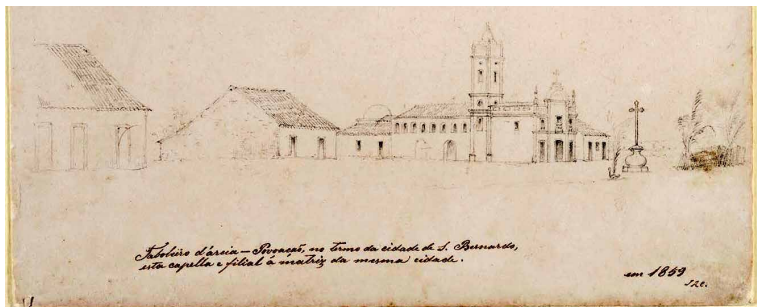 Taboleiro d'areia — Povoação, no termo da cidade de S. Bernardo,
esta capella e filial á matriz da mesma cidade.
em 1859